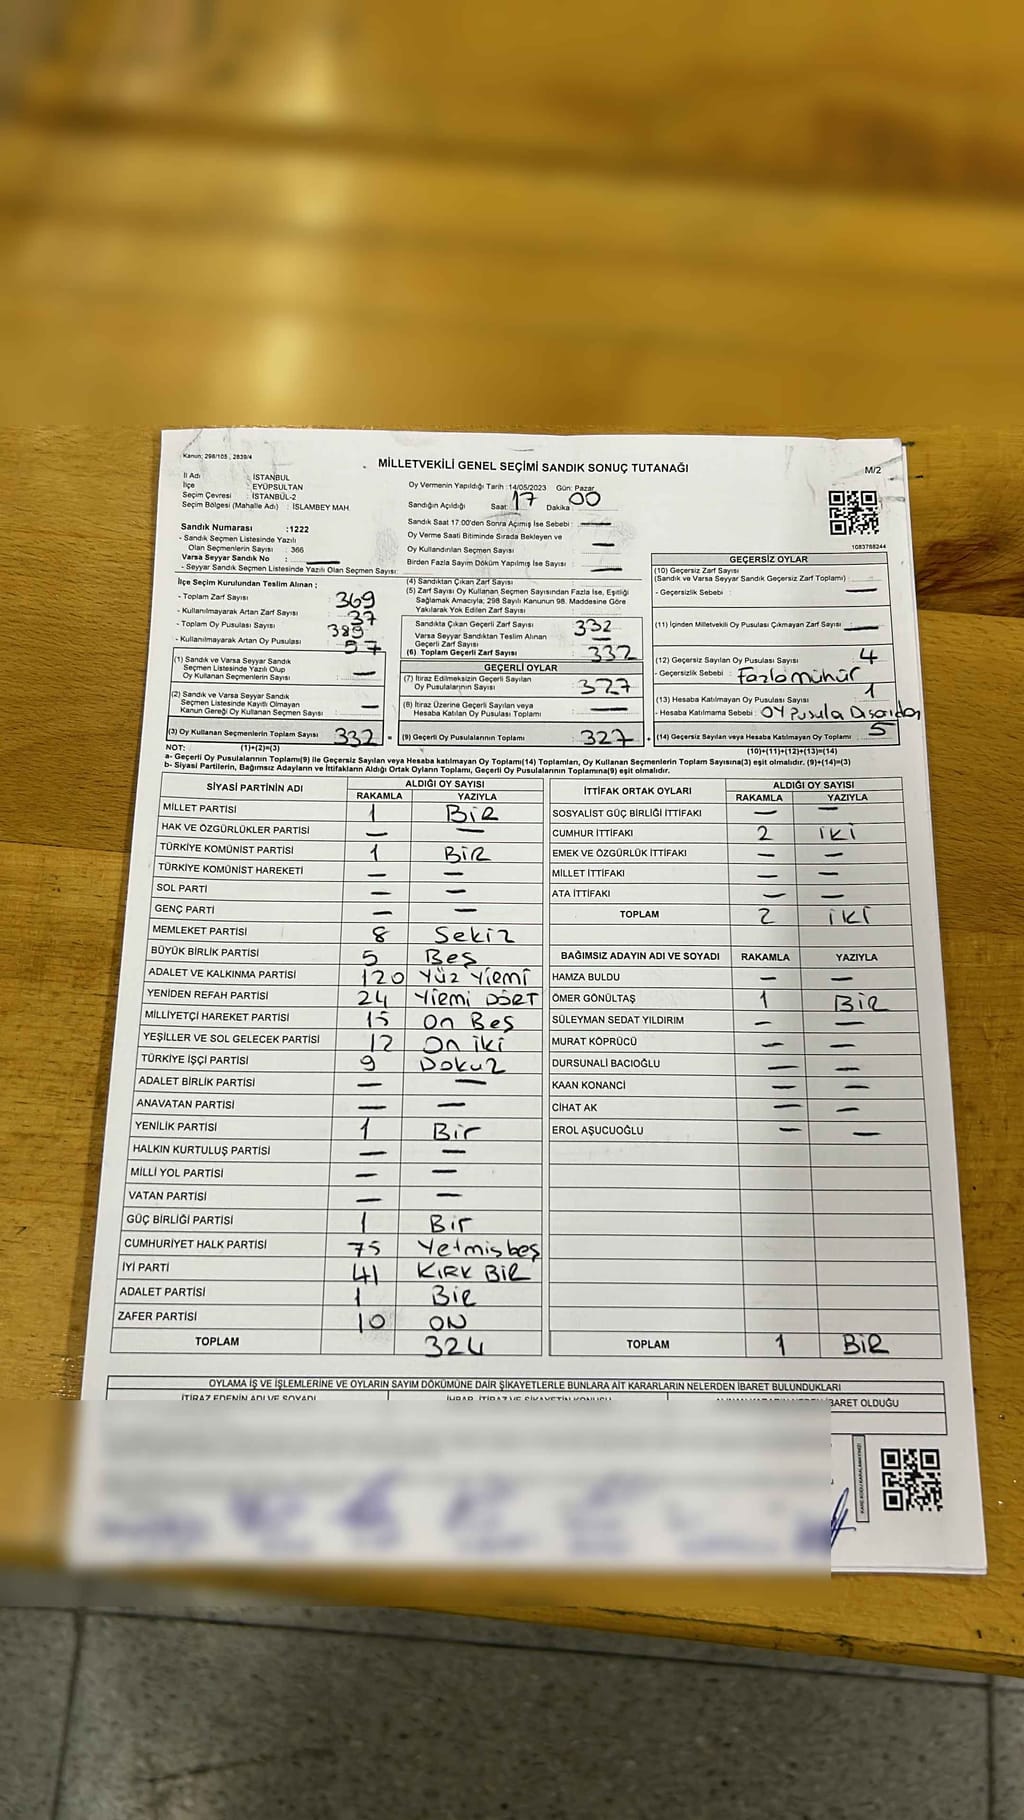 Kanun: 298/105 , 2839/4
MİLLETVEKİLİ GENEL SEÇİMİ SANDIK SONUÇ TUTANAĞI
M/2
İl Adı : İSTANBUL
İlçe : EYÜPSULTAN
Seçim Çevresi : İSTANBUL-2
Seçim Bölgesi (Mahalle Adı) : İSLAMBEY MAH.
Sandık Numarası :1222
- Sandık Seçmen Listesinde Yazılı
Olan Seçmenlerin Sayısı : 366
Varsa Seyyar Sandık No : —
- Seyyar Sandık Seçmen Listesinde Yazılı Olan Seçmen Sayısı:
Oy Vermenin Yapıldığı Tarih :14/05/2023 Gün: Pazar
Sandığın Açıldığı Saat 17 Dakika 00
Sandık Saat 17:00'den Sonra Açımış İse Sebebi : —
Oy Verme Saati Bitiminde Sırada Bekleyen ve
Oy Kullandırılan Seçmen Sayısı —
Birden Fazla Sayım Döküm Yapılmış İse Sayısı : —
1083788244
İlçe Seçim Kurulundan Teslim Alınan :
- Toplam Zarf Sayısı 369
- Kullanılmayarak Artan Zarf Sayısı 37
- Toplam Oy Pusulası Sayısı 389
- Kullanılmayarak Artan Oy Pusulası 57
(1) Sandık ve Varsa Seyyar Sandık
Seçmen Listesinde Yazılı Olup
Oy Kullanan Seçmenlerin Sayısı —
(2) Sandık ve Varsa Seyyar Sandık
Seçmen Listesinde Kayıtlı Olmayan
Kanun Gereği Oy Kullanan Seçmen Sayısı —
(3) Oy Kullanan Seçmenlerin Toplam Sayısı 332 =
(4) Sandıktan Çıkan Zarf Sayısı
(5) Zarf Sayısı Oy Kullanan Seçmen Sayısından Fazla İse, Eşitliği
Sağlamak Amacıyla; 298 Sayılı Kanunun 98. Maddesine Göre
Yakılarak Yok Edilen Zarf Sayısı :
Sandıkta Çıkan Geçerli Zarf Sayısı 332
Varsa Seyyar Sandıktan Teslim Alınan
Geçerli Zarf Sayısı —
(6) Toplam Geçerli Zarf Sayısı 332
GEÇERLİ OYLAR
(7) İtiraz Edilmeksizin Geçerli Sayılan
Oy Pusulalarının Sayısı : 327
(8) İtiraz Üzerine Geçerli Sayılan veya
Hesaba Katılan Oy Pusulası Toplamı : —
(9) Geçerli Oy Pusulalarının Toplamı : 327 +
GEÇERSİZ OYLAR
(10) Geçersiz Zarf Sayısı
(Sandık ve Varsa Seyyar Sandık Geçersiz Zarf Toplamı) : —
- Geçersizlik Sebebi : —
(11) İçinden Milletvekili Oy Pusulası Çıkmayan Zarf Sayısı : —
(12) Geçersiz Sayılan Oy Pusulası Sayısı : 4
- Geçersizlik Sebebi : Fazla mühür
(13) Hesaba Katılmayan Oy Pusulası Sayısı : 1
- Hesaba Katılmama Sebebi : OY Pusula Dısarıdan
(14) Geçersiz Sayılan veya Hesaba Katılmayan Oy Toplamı : 5
NOT: (1)+(2)=(3)
(10)+(11)+(12)+(13)=(14)
a- Geçerli Oy Pusulalarının Toplamı(9) ile Geçersiz Sayılan veya Hesaba katılmayan Oy Toplamı(14) Toplamları, Oy Kullanan Seçmenlerin Toplam Sayısına(3) eşit olmalıdır. (9)+(14)=(3)
b- Siyasi Partilerin, Bağımsız Adayların ve İttifakların Aldığı Ortak Oyların Toplamı, Geçerli Oy Pusulalarının Toplamına(9) eşit olmalıdır.
SİYASİ PARTİNİN ADI ALDIĞI OY SAYISI
RAKAMLA YAZIYLA
MİLLET PARTİSİ 1 BİR
HAK VE ÖZGÜRLÜKLER PARTİSİ — —
TÜRKİYE KOMÜNİST PARTİSİ 1 BİR
TÜRKİYE KOMÜNİST HAREKETİ — —
SOL PARTİ — —
GENÇ PARTİ — —
MEMLEKET PARTİSİ 8 Sekiz
BÜYÜK BİRLİK PARTİSİ 5 Beş
ADALET VE KALKINMA PARTİSİ 120 Yüz Yiemi
YENİDEN REFAH PARTİSİ 24 Yiemi DÖRT
MİLLİYETÇİ HAREKET PARTİSİ 15 On Beş
YEŞİLLER VE SOL GELECEK PARTİSİ 12 On iki
TÜRKİYE İŞÇİ PARTİSİ 9 Dokuz
ADALET BİRLİK PARTİSİ — —
ANAVATAN PARTİSİ — —
YENİLİK PARTİSİ 1 Bir
HALKIN KURTULUŞ PARTİSİ — —
MİLLİ YOL PARTİSİ — —
VATAN PARTİSİ — —
GÜÇ BİRLİĞİ PARTİSİ 1 Bir
CUMHURİYET HALK PARTİSİ 75 Yetmişbeş
İYİ PARTİ 41 KIRK BİR
ADALET PARTİSİ 1 BİR
ZAFER PARTİSİ 10 ON
TOPLAM 324
İTTİFAK ORTAK OYLARI ALDIĞI OY SAYISI
RAKAMLA YAZIYLA
SOSYALİST GÜÇ BİRLİĞİ İTTİFAKI — —
CUMHUR İTTİFAKI 2 İKİ
EMEK VE ÖZGÜRLÜK İTTİFAKI — —
MİLLET İTTİFAKI — —
ATA İTTİFAKI — —
TOPLAM 2 İKİ
BAĞIMSIZ ADAYIN ADI VE SOYADI RAKAMLA YAZIYLA
HAMZA BULDU — —
ÖMER GÖNÜLTAŞ 1 BİR
SÜLEYMAN SEDAT YILDIRIM — —
MURAT KÖPRÜCÜ — —
DURSUNALİ BACIOĞLU — —
KAAN KONANCİ — —
CİHAT AK — —
EROL AŞUCUOĞLU — —
TOPLAM 1 BİR
OYLAMA İŞ VE İŞLEMLERİNE VE OYLARIN SAYIM DÖKÜMÜNE DAİR ŞİKAYETLERLE BUNLARA AİT KARARLARIN NELERDEN İBARET BULUNDUKLARI
İTİRAZ EDENİN ADI VE SOYADI İHBAR, İTİRAZ VE ŞİKAYETİN KONUSU İBARET OLDUĞU